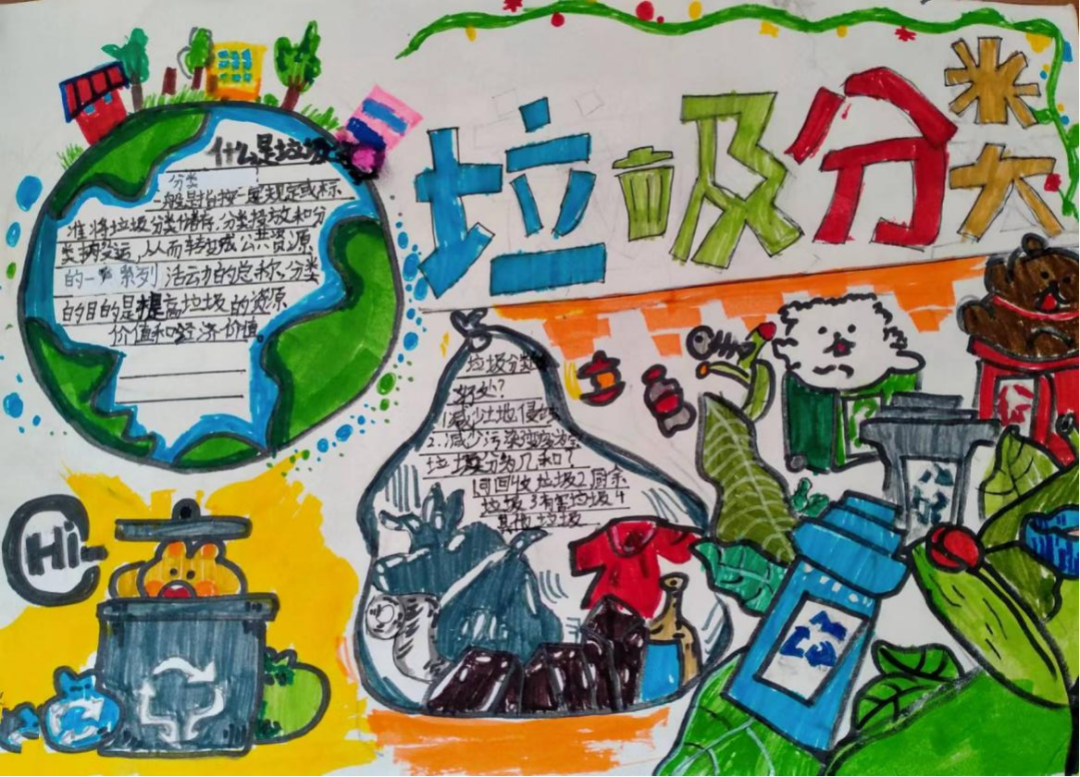 垃圾分类
什么是垃圾
分类
一般是指按一定规定或标
准将垃圾分类储存、分类投放和分
类搬运，从而转变成公共资源
的一系列活动的总称。分类
的目的是提高垃圾的资源
价值和经济价值。
垃圾分类
好处？
1.减少土地侵蚀
2.减少污染
垃圾分为几种？
1可回收垃圾2厨余
垃圾3有害垃圾4
其他垃圾
Hi~